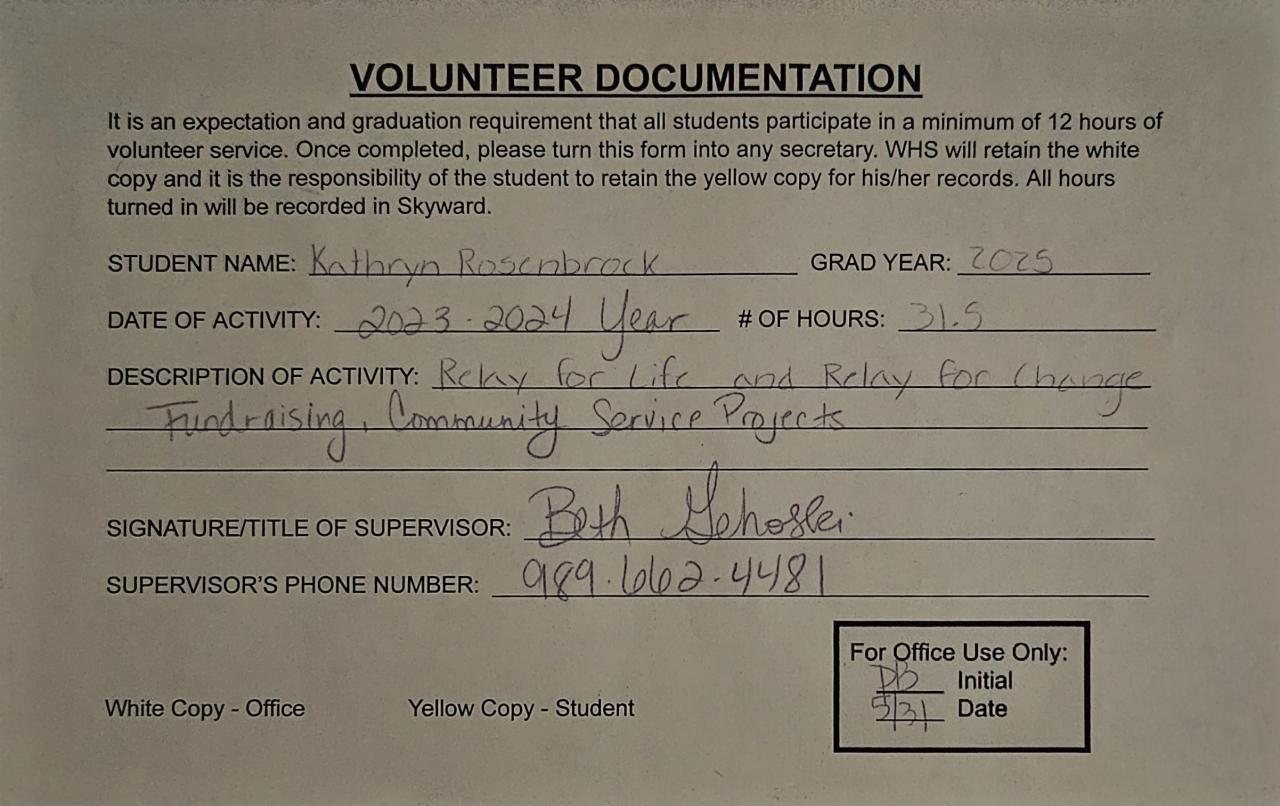 VOLUNTEER DOCUMENTATION
It is an expectation and graduation requirement that all students participate in a minimum of 12 hours of
volunteer service. Once completed, please turn this form into any secretary. WHS will retain the white
copy and it is the responsibility of the student to retain the yellow copy for his/her records. All hours
turned in will be recorded in Skyward.
STUDENT NAME: Kathryn Rosenbrock GRAD YEAR: 2025
DATE OF ACTIVITY: 2023-2024 Year # OF HOURS: 31.5
DESCRIPTION OF ACTIVITY: Relay for Life and Relay for Change
Fundraising, Community Service Projects
SIGNATURE/TITLE OF SUPERVISOR: Beth
SUPERVISOR'S PHONE NUMBER: 989.662.4481
For Office Use Only:
DB Initial
5/31 Date
White Copy - Office Yellow Copy - Student